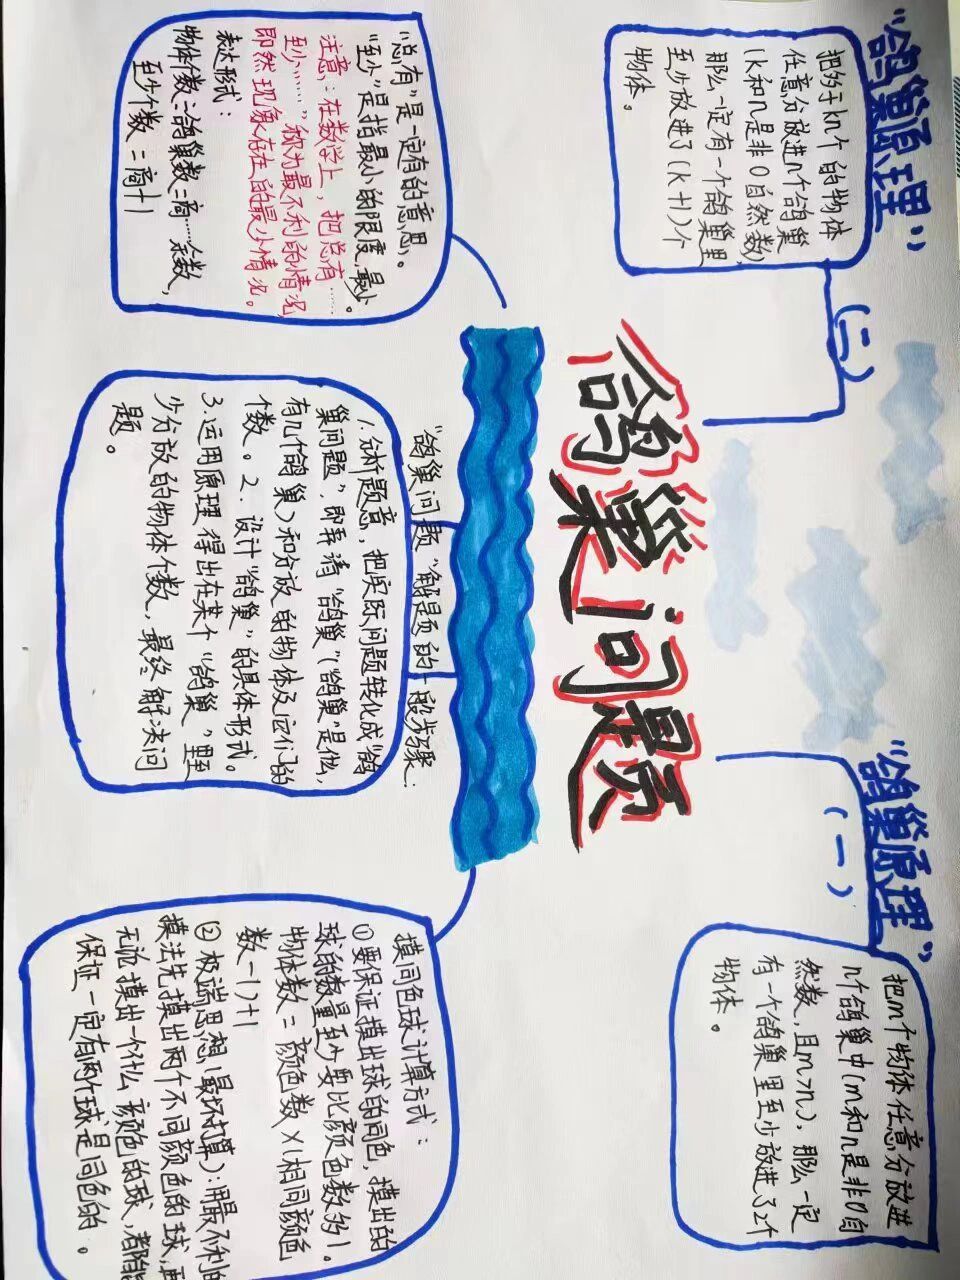 "鸽巢原理"
(二)
把多于kn个的物体
任意分放进n个鸽巢
(k和n是非0自然数),
那么一定有一个鸽巢里
至少放进了(k+1)个
物体。
"鸽巢原理"
(一)
把m个物体任意分放进
n个鸽巢中(m和n是非0自
然数,且m>n),那么一定
有一个鸽巢里至少放进了2个
物体。
鸽巢问题
"总有"是一定有的意思。
"至少"是指最小的限度,最少。
注意:在数学上,把总有……
至少……"称为最不利的情况,
即然现象存在的最少情况。
表达形式:
物体个数÷鸽巢数=商……余数,
至少个数=商+1
"鸽巢问题"解题的一般步骤:
1.分析题意,把实际问题转化成"鸽
巢问题",即弄清"鸽巢"("鸽巢"是什么,
有几个鸽巢)和分放的物体及它们的
个数。2.设计"鸽巢"的具体形式。
3.运用原理得出在某个"鸽巢"里至
少分放的物体个数,最终解决问
题。
摸同色球计算方式:
①要保证摸出球的同色,摸出的
球的数量至少要比颜色数多1。
物体数=颜色数×(相同颜色
数-1)+1
②极端思想(最坏打算):用最不利的
摸法先摸出两个不同颜色的球,再
无论摸出一个什么颜色的球,都能
保证一定有两个球是同色的。